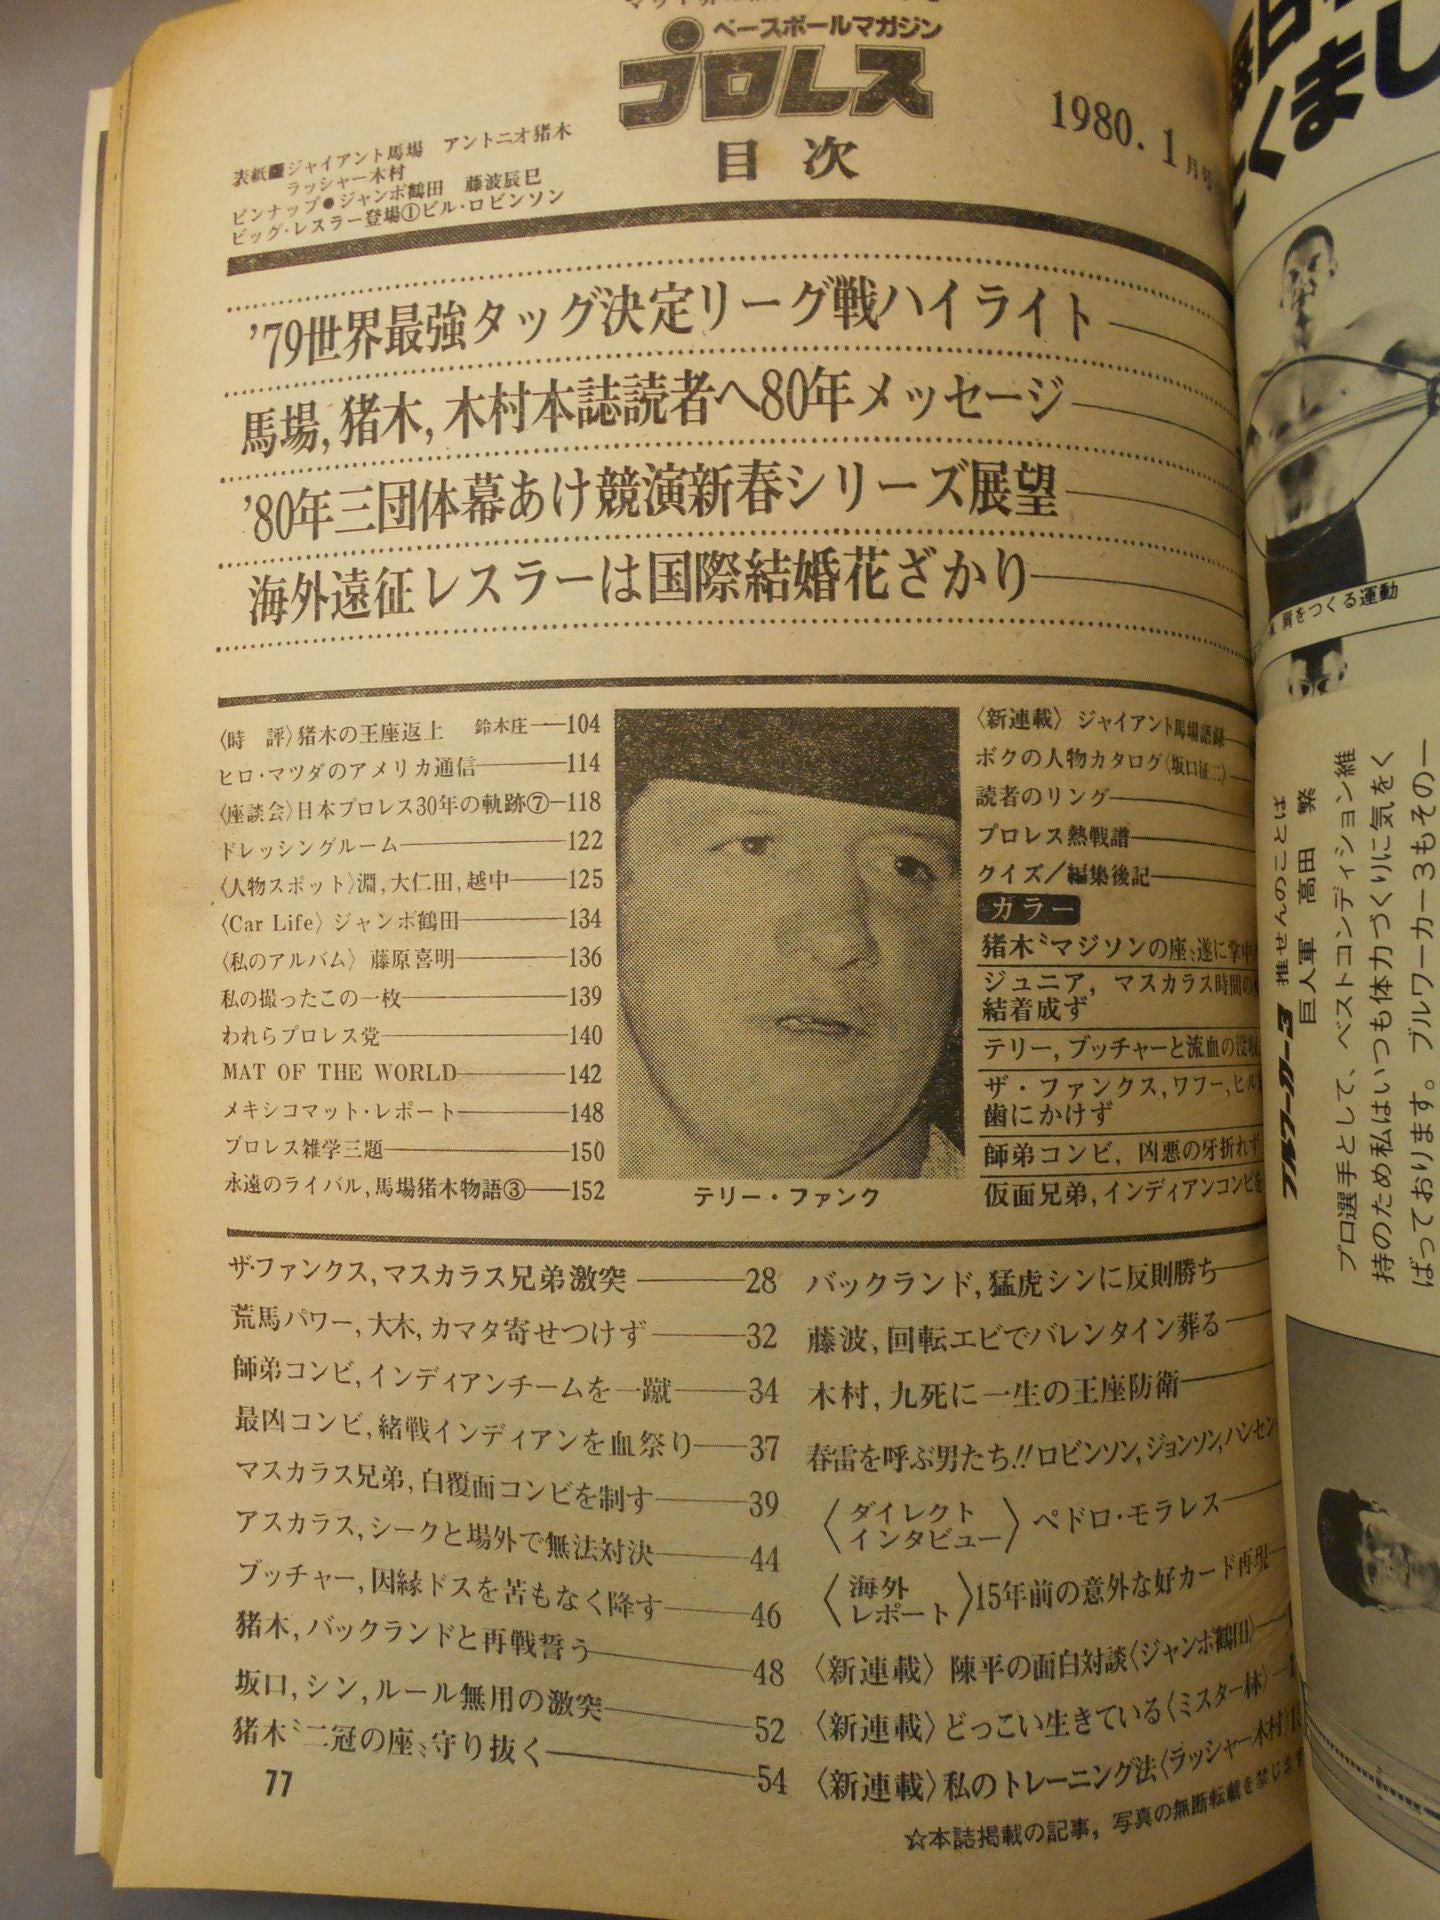 ベースボールマガジン
プロレス
目次
1980.1月号
表紙■ジャイアント馬場 アントニオ猪木
ラッシャー木村
ピンナップ●ジャンボ鶴田 藤波辰巳
ビッグ・レスラー登場①ビル・ロビンソン
'79世界最強タッグ決定リーグ戦ハイライト
馬場,猪木,木村本誌読者へ80年メッセージ
'80年三団体幕あけ競演新春シリーズ展望
海外遠征レスラーは国際結婚花ざかり
〈時 評〉猪木の王座返上 鈴木庄一104
ヒロ・マツダのアメリカ通信114
〈座談会〉日本プロレス30年の軌跡⑦118
ドレッシングルーム122
〈人物スポット〉淵,大仁田,越中125
〈Car Life〉ジャンボ鶴田134
〈私のアルバム〉藤原喜明136
私の撮ったこの一枚139
われらプロレス党140
MAT OF THE WORLD142
メキシコマット・レポート148
プロレス雑学三題150
永遠のライバル,馬場猪木物語③152
テリー・ファンク
〈新連載〉ジャイアント馬場語録
ボクの人物カタログ〈坂口征二〉
読者のリング
プロレス熱戦譜
クイズ/編集後記
カラー
猪木〝マジソンの座〟遂に掌中
ジュニア,マスカラス時間の
結着成ず
テリー,ブッチャーと流血の没収
ザ・ファンクス,ワフー,ヒル
歯にかけず
師弟コンビ,凶悪の牙折れず
仮面兄弟,インディアンコンビを
ザ・ファンクス,マスカラス兄弟激突28
荒馬パワー,大木,カマタ寄せつけず32
師弟コンビ,インディアンチームを一蹴34
最凶コンビ,緒戦インディアンを血祭り37
マスカラス兄弟,白覆面コンビを制す39
アスカラス,シークと場外で無法対決44
ブッチャー,因縁ドスを苦もなく降す46
猪木,バックランドと再戦誓う48
坂口,シン,ルール無用の激突52
猪木〝二冠の座〟守り抜く54
バックランド,猛虎シンに反則勝ち
藤波,回転エビでバレンタイン葬る
木村,九死に一生の王座防衛
春雷を呼ぶ男たち!!ロビンソン,ジョンソン,ハンセン
〈ダイレクト
インタビュー〉ペドロ・モラレス
〈海外
レポート〉15年前の意外な好カード再現
〈新連載〉陳平の面白対談〈ジャンボ鶴田〉
〈新連載〉どっこい生きている〈ミスター林〉
〈新連載〉私のトレーニング法〈ラッシャー木村〉
☆本誌掲載の記事,写真の無断転載を禁じます
77
肩をつくる運動
ブルワーカー3 推せんのことば
巨人軍 高田 繁
プロ選手として、ベストコンディション維
持のため私はいつも体力づくりに気をく
ばっております。ブルワーカー3もその一